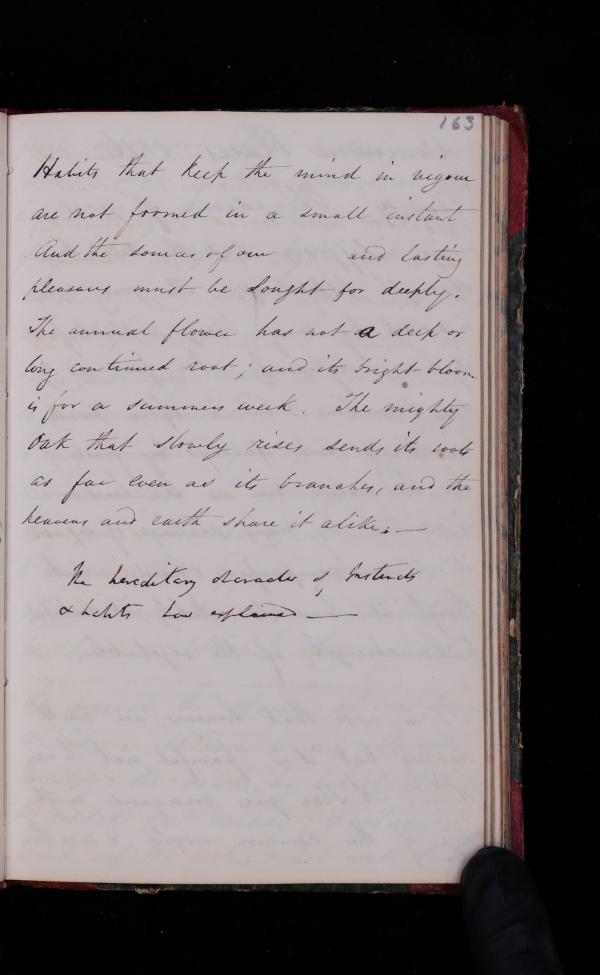 163
Habits that keep the mind in vigour
are not formed in a small instant
And the sources of our and lasting
pleasures must be sought for deeply.
The annual flower has not a deep or
long continued root; and its bright bloom
is for a summers week. The mighty
Oak that slowly rises sends its roots
as far even as its branches, and the
heavens and earth share it alike. —
The hereditary character of Instincts
& habits how explained —